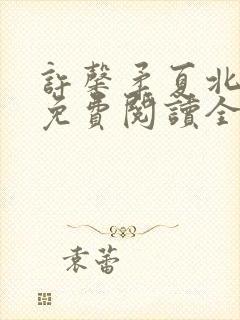 許馨矛夏北
免費閱讀全
袁蕾